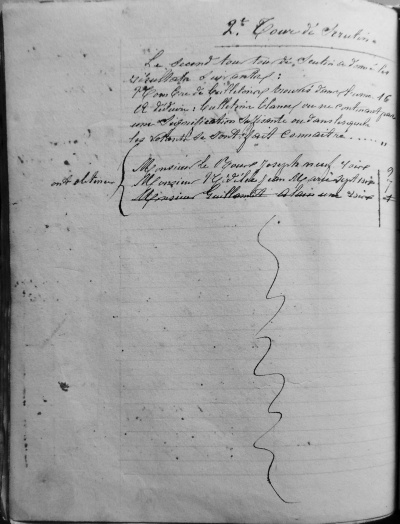 2e Tour de Scrutin
Le second tour de Scrutin a donné les
résultats suivantes :
Nombre de Bulletins trouvés dans l'urne 16
A déduire : Bulletins blancs ou ne contenant pas
une désignation suffisante ou dans lesquels
les votants se sont fait connaître ........ "
ont obtenu
Monsieur le Bour Joseph neuf voix 9
Monsieur Jean Marie sept voix 7
Monsieur Guillaume Alain une voix 1